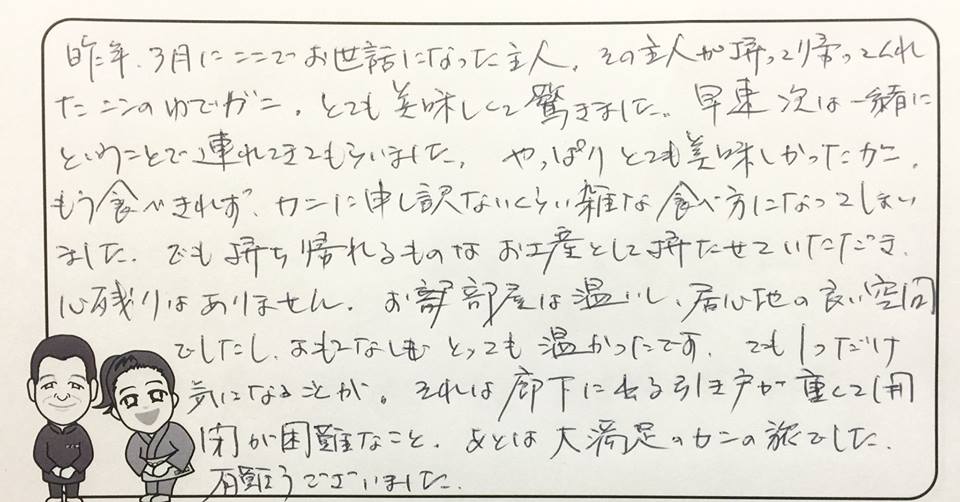 昨年、3月にここでお世話になった主人。その主人が持って帰ってくれ
たここのゆでガニ。とても美味しくて驚きました。早速次は一緒に
ということで連れてきてもらいました。やっぱりとても美味しかったカニ。
もう食べきれず、カニに申し訳ないくらい雑な食べ方になってしまい
ました。でも持ち帰れるものはお土産として持たせていただき、
心残りはありません。お部屋は温いし、居心地の良い空間
でしたし、おもてなしもとっても温かったです。でも1つだけ
気になることが。それは廊下に出る引き戸が重くて開
閉が困難なこと。あとは大満足のカニの旅でした。
有難うございました。